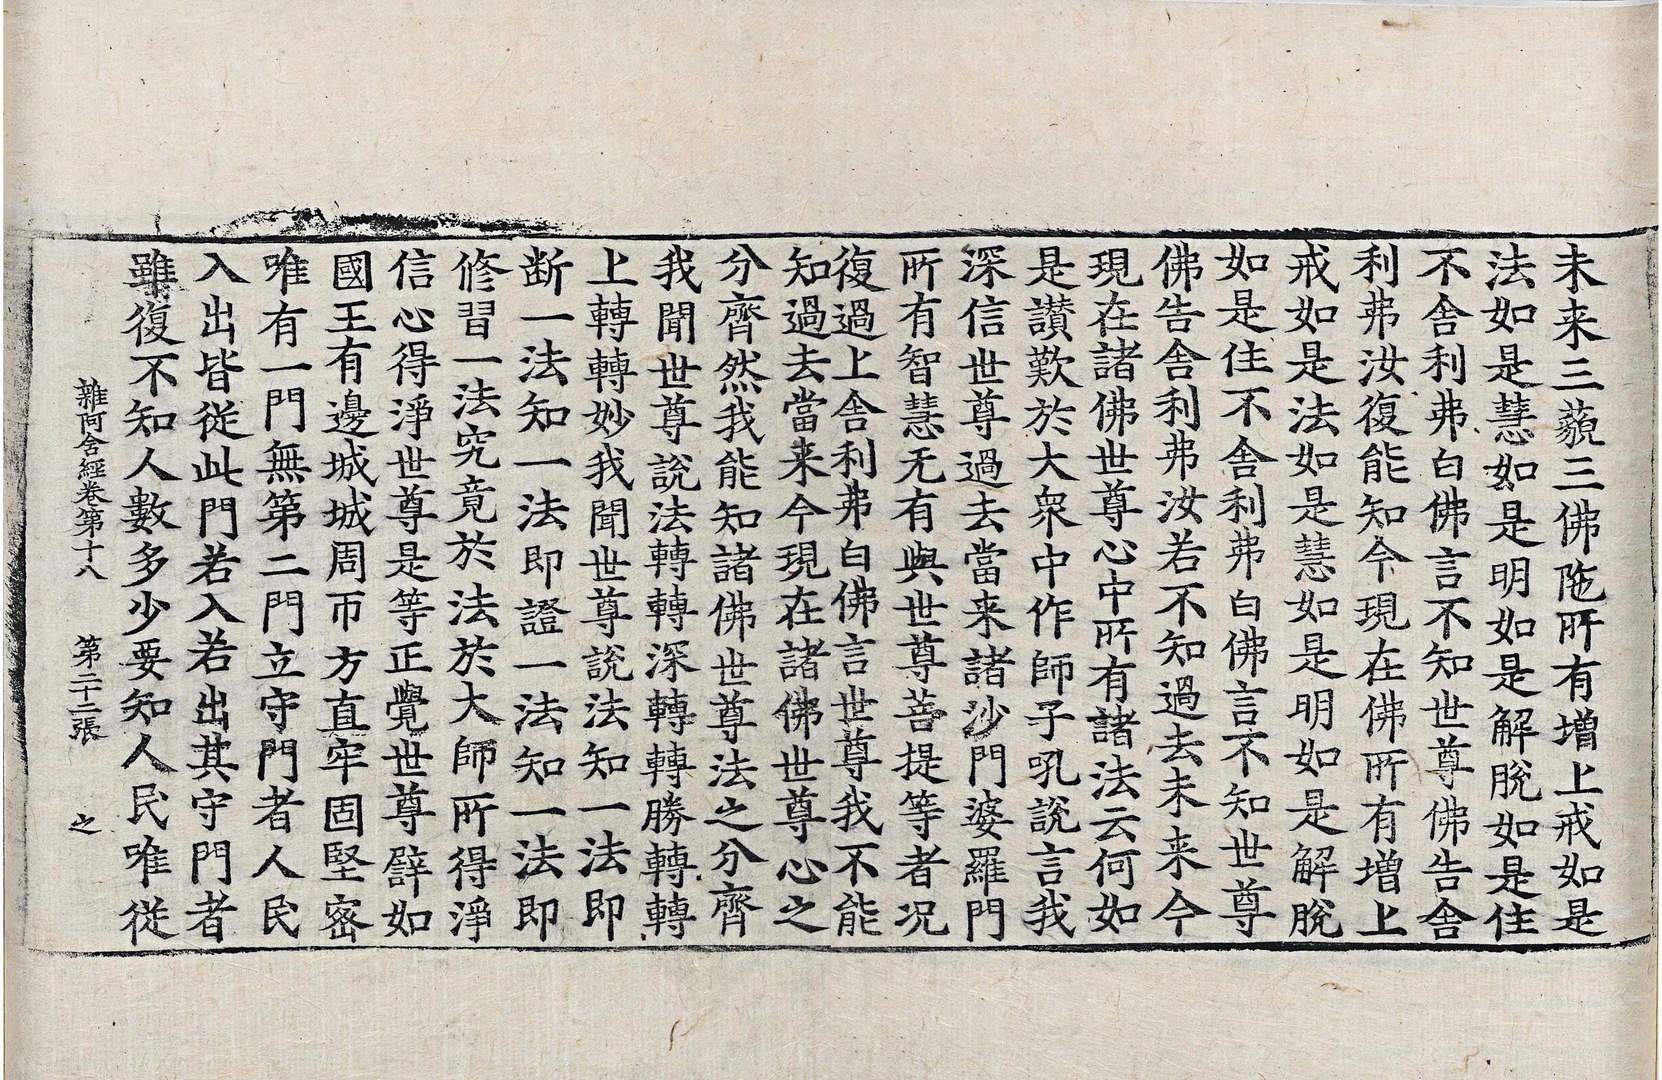 未来三藐三佛陁所有增上戒如是
法如是慧如是明如是解脫如是住
不舍利弗白佛言不知世尊佛告舍
利弗汝復能知今現在佛所有增上
戒如是法如是慧如是明如是解脫
如是住不舍利弗白佛言不知世尊
佛告舍利弗汝若不知過去未来今
現在諸佛世尊心中所有諸法云何如
是讃歎於大衆中作師子吼說言我
深信世尊過去當来諸沙門婆羅門
所有智慧无有與世尊菩提等者况
復過上舍利弗白佛言世尊我不能
知過去當来今現在諸佛世尊心之
分齊然我能知諸佛世尊法之分齊
我聞世尊說法轉轉深轉轉勝轉轉
上轉轉妙我聞世尊說法知一法即
断一法知一法即證一法知一法即
修習一法究竟於法於大師所得淨
信心得淨世尊是等正覺世尊譬如
國王有邊城城周帀方直牢固堅密
唯有一門無第二門立守門者人民
入出皆從此門若入若出其守門者
雖復不知人數多少要知人民唯從
雜阿含經卷第十八 第二十二張 之